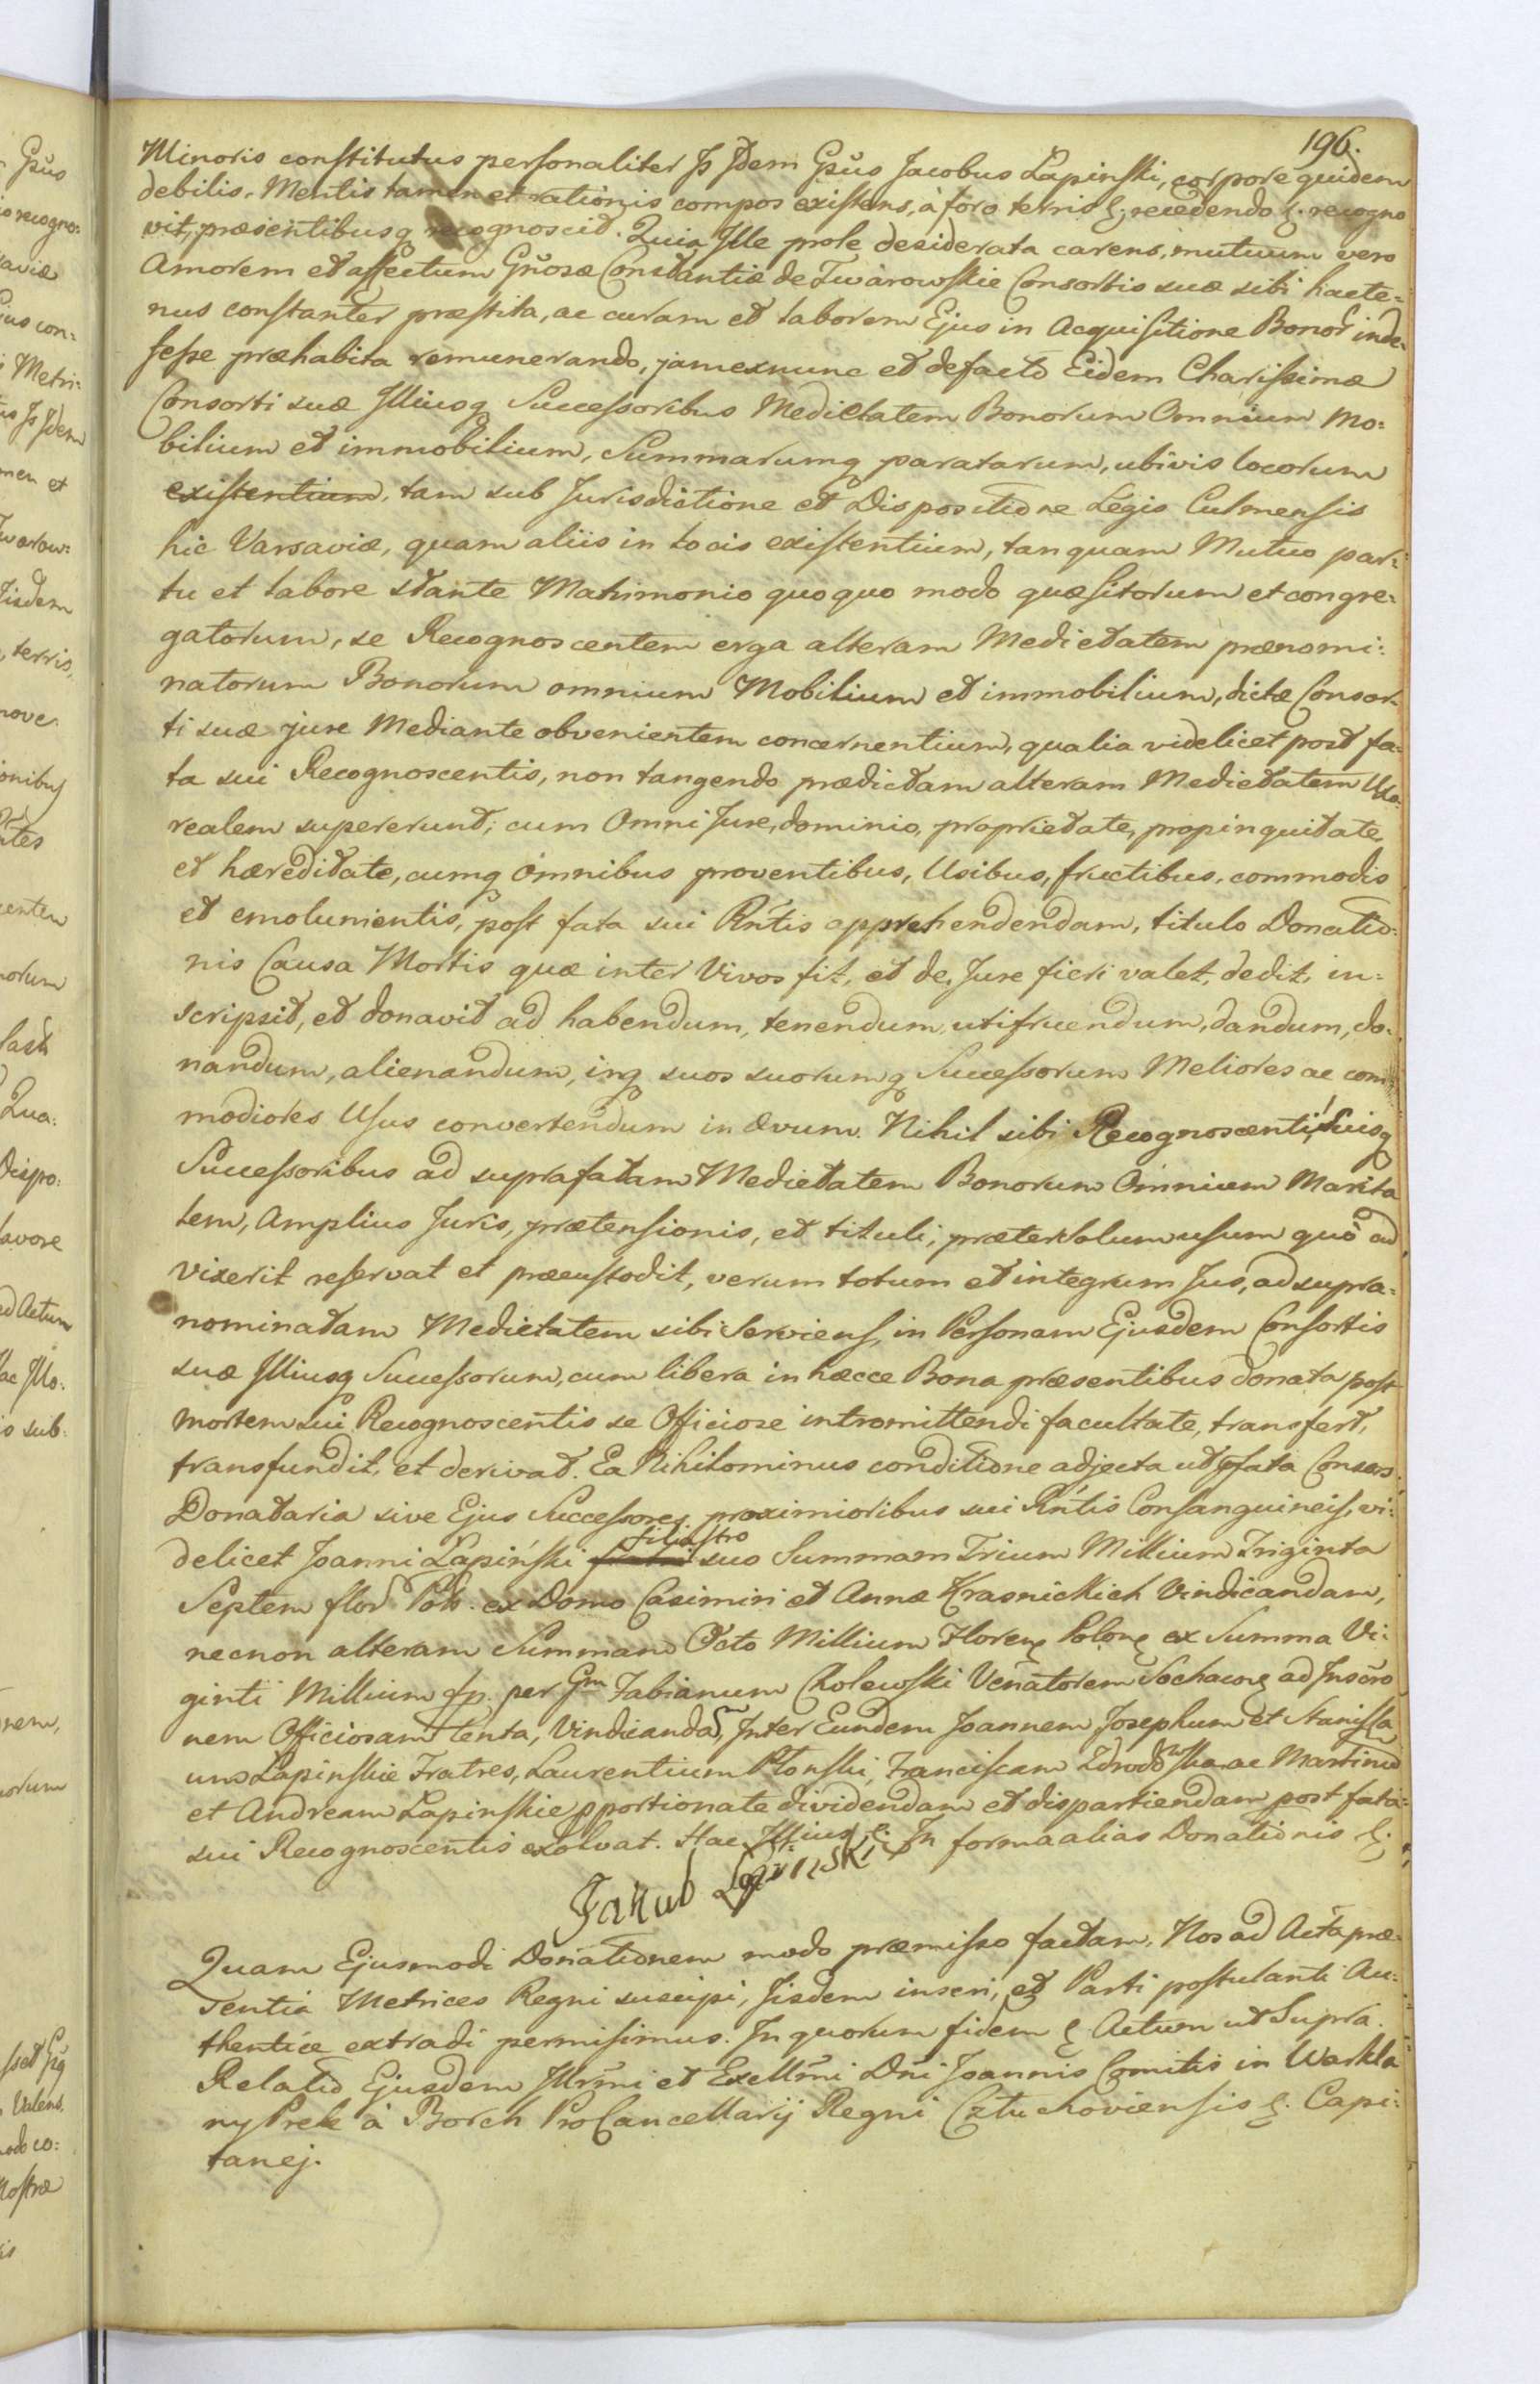 196.
Minoris constitutus personaliter Js Jdem Gsus Jacobus Lapinski, corpore quidem
debilis, Mentis tamen et rationis compos existens, à foro terris &; recedendo &. recogno
vit, præsentibusq recognoscit. Quia Jlle prole desiderata carens, mutuum vero
Amorem et affectum Gnosæ Constantiæ de Twarowskie Consortis suæ sibi hacte=
nus constanter præstita, ac curam et laborem Ejus in Acquisitione Bonor inde=
fesse præhabita remunerando, jam exnunc et defacto Eidem Charissimæ
Consorti suæ Jlliusq Successoribus Medietatem Bonorum Omnium Mo=
bilium et immobilium, Summarumq paratarum, ubivis locorum
existentium, tam sub Jurisdictione et Dispositione Légis Culmensis
hic Varsaviæ, quam aliis in locis existentium, tanquam Mutuo par=
tu et labore stante Matrimonio quoquo modo quæsitorum et congre=
gatorum, se Recognoscentem erga alteram Medietatem prænomi=
natorum Bonorum omnium Mobilium et immobilium, dictæ Consor=
ti suæ jure Mediante obvenientem concernentium, qualia videlicet post fa=
ta sui Recognoscentis, non tangendo prædictam alteram Medietatem Uxo=
realem supererunt; cum Omni Jure, dominio, proprietate, propinquitate,
et hæreditate, cumq omnibus proventibus, Usibus, fructibus, commodis
et emolumentis, post fata sui Rntis apprehendendam, titulo Donatio=
nis Causa Mortis quæ inter Vivos fit, et de Jure fieri valet, dedit, in=
scripsit, et donavit ad habendum, tenendum, utifruendum, dandum, do=
nandum, alienandum, inq suos suorumq Successorum Meliores ac com=
modiores Usus convertendum in ævum. Nihil sibi Recognoscenti, Suisq
Successoribus ad suprafatam Medietatem Bonorum Omnium Marita
lem, Amplius Juris, prætensionis, et tituli, præter solum usum quò ad
vixerit reservat et præcustodit, verum totum et integrum Jus, ad supra=
nominatam Medietatem sibi Serviens, in Personam Ejusdem Consortis
suæ Jlliusq Successorum, cum libera in hæcce Bona præsentibus donata post
mortem sui Recognoscentis se Officiose intromittendi facultate, transfert,
transfundit, et derivat. Ea Nihilominus conditione adjecta ut pfata Consors
Donataria sive Ejus Successores proximioribus sui Rntis Consanguineis, vi=
delicet Joanni Lapiński filiastro suo Summam Trium Millium Triginta
Septem flor Pol. ex Domo Casimiri et Annæ Krasnickich Vindicandam,
necnon alteram Summam Octo Millium Floren Polon ex Summa Vi=
ginti Millium fp. per Gm Fabianum Cholewski Venatorem Sochacov ad Inscro
nem Officiosam tenta, Vindicandam, Inter Eundem Joannem Josephum et Stanisla
um Lapinskie Fratres, Laurentium Płonski, Franciscam ac Martinum
et Andream Lapinskie pportionate dividendam et dispartiendam post fata
sui Recognoscentis exolvat. Hac Jllius &. Jn forma alias Donationis &.
Jakub Łapinski
Quam Ejusmodi Donationem modo præmisso factam, Nos ad Acta præ=
sentia Metrices Regni suscipi, Jisdem inseri, et Parti postulanti Au=
thentice extradi permisimus. Jn quorum fidem &. Actum ut Supra.
Relatio Ejusdem Jllrmi et Excellmi Dni Joannis Comitis in Warkla
ny Prele à Borch ProCancellarij Regni Cztuchoviensis &. Capi=
tanej.